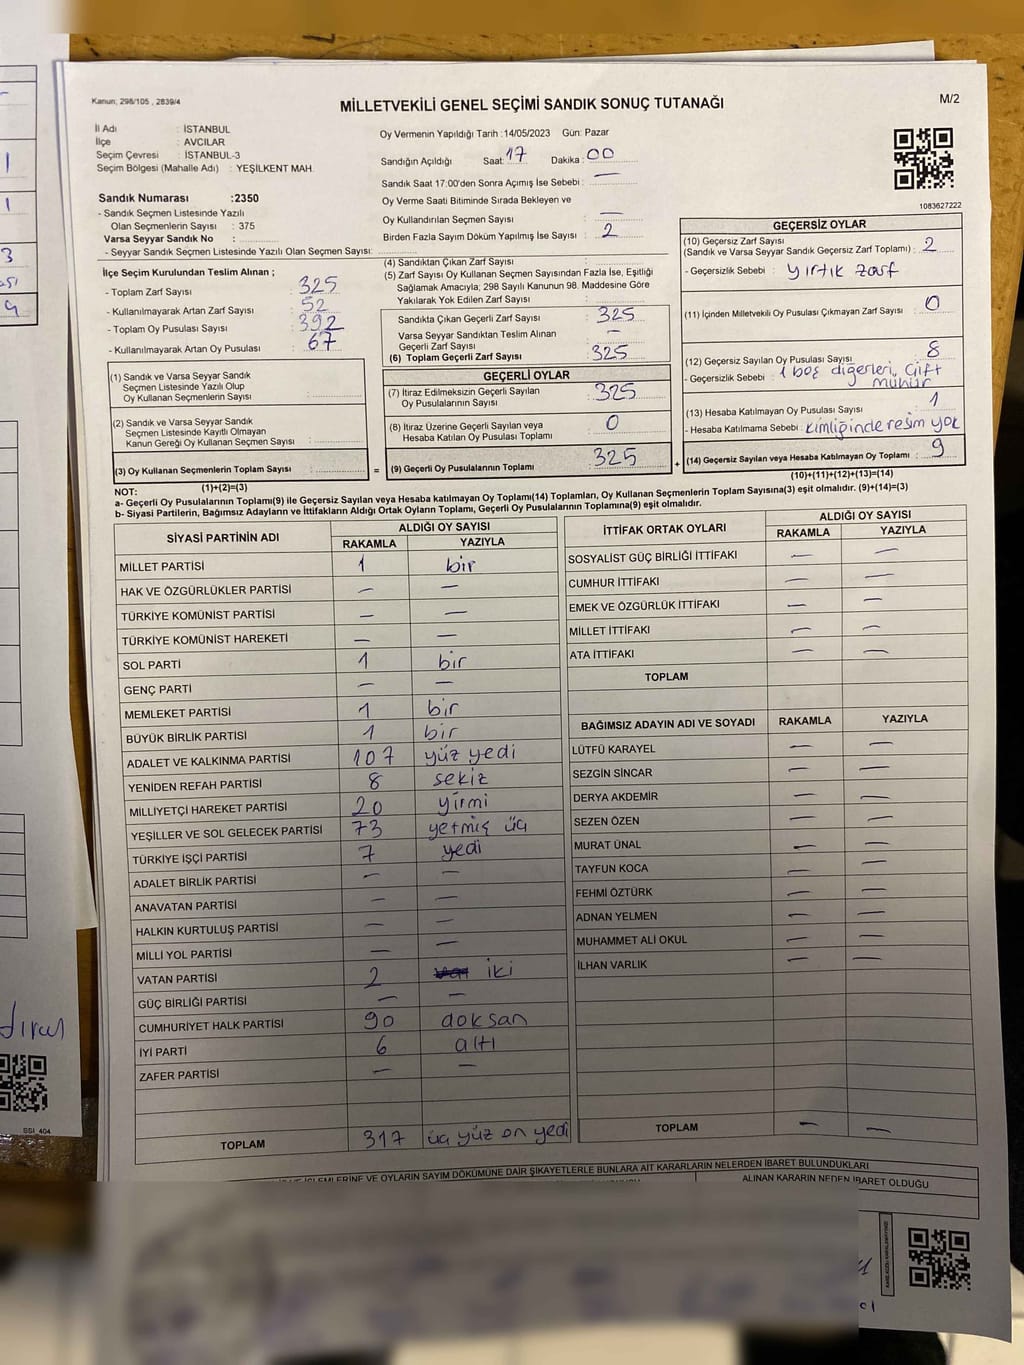 Kanun; 298/105 , 2839/4
MİLLETVEKİLİ GENEL SEÇİMİ SANDIK SONUÇ TUTANAĞI
M/2
İl Adı : İSTANBUL
İlçe : AVCILAR
Seçim Çevresi : İSTANBUL-3
Seçim Bölgesi (Mahalle Adı) : YEŞİLKENT MAH.
Sandık Numarası :2350
- Sandık Seçmen Listesinde Yazılı
Olan Seçmenlerin Sayısı : 375
Varsa Seyyar Sandık No :
- Seyyar Sandık Seçmen Listesinde Yazılı Olan Seçmen Sayısı:
Oy Vermenin Yapıldığı Tarih :14/05/2023 Gün: Pazar
Sandığın Açıldığı Saat: 17 Dakika : 00
Sandık Saat 17:00'den Sonra Açımış İse Sebebi : —
Oy Verme Saati Bitiminde Sırada Bekleyen ve
Oy Kullandırılan Seçmen Sayısı : —
Birden Fazla Sayım Döküm Yapılmış İse Sayısı : 2
1083627222
İlçe Seçim Kurulundan Teslim Alınan ;
- Toplam Zarf Sayısı : 325
- Kullanılmayarak Artan Zarf Sayısı : 52
- Toplam Oy Pusulası Sayısı : 392
- Kullanılmayarak Artan Oy Pusulası : 67
(1) Sandık ve Varsa Seyyar Sandık
Seçmen Listesinde Yazılı Olup
Oy Kullanan Seçmenlerin Sayısı :
(2) Sandık ve Varsa Seyyar Sandık
Seçmen Listesinde Kayıtlı Olmayan
Kanun Gereği Oy Kullanan Seçmen Sayısı :
(3) Oy Kullanan Seçmenlerin Toplam Sayısı :
(1)+(2)=(3)
(4) Sandıktan Çıkan Zarf Sayısı :
(5) Zarf Sayısı Oy Kullanan Seçmen Sayısından Fazla İse, Eşitliği
Sağlamak Amacıyla; 298 Sayılı Kanunun 98. Maddesine Göre
Yakılarak Yok Edilen Zarf Sayısı :
Sandıkta Çıkan Geçerli Zarf Sayısı : 325
Varsa Seyyar Sandıktan Teslim Alınan
Geçerli Zarf Sayısı : —
(6) Toplam Geçerli Zarf Sayısı : 325
GEÇERLİ OYLAR
(7) İtiraz Edilmeksizin Geçerli Sayılan
Oy Pusulalarının Sayısı : 325
(8) İtiraz Üzerine Geçerli Sayılan veya
Hesaba Katılan Oy Pusulası Toplamı : 0
= (9) Geçerli Oy Pusulalarının Toplamı : 325 +
GEÇERSİZ OYLAR
(10) Geçersiz Zarf Sayısı
(Sandık ve Varsa Seyyar Sandık Geçersiz Zarf Toplamı) : 2
- Geçersizlik Sebebi : yırtık zarf
(11) İçinden Milletvekili Oy Pusulası Çıkmayan Zarf Sayısı : 0
(12) Geçersiz Sayılan Oy Pusulası Sayısı : 8
- Geçersizlik Sebebi : 1 boş diğerleri, Çift
mühür
(13) Hesaba Katılmayan Oy Pusulası Sayısı : 1
- Hesaba Katılmama Sebebi : kimliğinde resim yok
(14) Geçersiz Sayılan veya Hesaba Katılmayan Oy Toplamı : 9
(10)+(11)+(12)+(13)=(14)
NOT:
a- Geçerli Oy Pusulalarının Toplamı(9) ile Geçersiz Sayılan veya Hesaba katılmayan Oy Toplamı(14) Toplamları, Oy Kullanan Seçmenlerin Toplam Sayısına(3) eşit olmalıdır. (9)+(14)=(3)
b- Siyasi Partilerin, Bağımsız Adayların ve İttifakların Aldığı Ortak Oyların Toplamı, Geçerli Oy Pusulalarının Toplamına(9) eşit olmalıdır.
SİYASİ PARTİNİN ADI ALDIĞI OY SAYISI
RAKAMLA YAZIYLA
MİLLET PARTİSİ 1 bir
HAK VE ÖZGÜRLÜKLER PARTİSİ — —
TÜRKİYE KOMÜNİST PARTİSİ — —
TÜRKİYE KOMÜNİST HAREKETİ — —
SOL PARTİ 1 bir
GENÇ PARTİ — —
MEMLEKET PARTİSİ 1 bir
BÜYÜK BİRLİK PARTİSİ 1 bir
ADALET VE KALKINMA PARTİSİ 107 yüz yedi
YENİDEN REFAH PARTİSİ 8 sekiz
MİLLİYETÇİ HAREKET PARTİSİ 20 yirmi
YEŞİLLER VE SOL GELECEK PARTİSİ 73 yetmiş üç
TÜRKİYE İŞÇİ PARTİSİ 7 yedi
ADALET BİRLİK PARTİSİ — —
ANAVATAN PARTİSİ — —
HALKIN KURTULUŞ PARTİSİ — —
MİLLİ YOL PARTİSİ — —
VATAN PARTİSİ 2 iki
GÜÇ BİRLİĞİ PARTİSİ — —
CUMHURİYET HALK PARTİSİ 90 doksan
İYİ PARTİ 6 altı
ZAFER PARTİSİ — —
TOPLAM 317 üç yüz on yedi
İTTİFAK ORTAK OYLARI ALDIĞI OY SAYISI
RAKAMLA YAZIYLA
SOSYALİST GÜÇ BİRLİĞİ İTTİFAKI — —
CUMHUR İTTİFAKI — —
EMEK VE ÖZGÜRLÜK İTTİFAKI — —
MİLLET İTTİFAKI — —
ATA İTTİFAKI — —
TOPLAM
BAĞIMSIZ ADAYIN ADI VE SOYADI RAKAMLA YAZIYLA
LÜTFÜ KARAYEL — —
SEZGİN SİNCAR — —
DERYA AKDEMİR — —
SEZEN ÖZEN — —
MURAT ÜNAL — —
TAYFUN KOCA — —
FEHMİ ÖZTÜRK — —
ADNAN YELMEN — —
MUHAMMET ALİ OKUL — —
İLHAN VARLIK — —
TOPLAM — —
İŞLEMLERİNE VE OYLARIN SAYIM DÖKÜMÜNE DAİR ŞİKAYETLERLE BUNLARA AİT KARARLARIN NELERDEN İBARET BULUNDUKLARI
ALINAN KARARIN NEDEN İBARET OLDUĞU